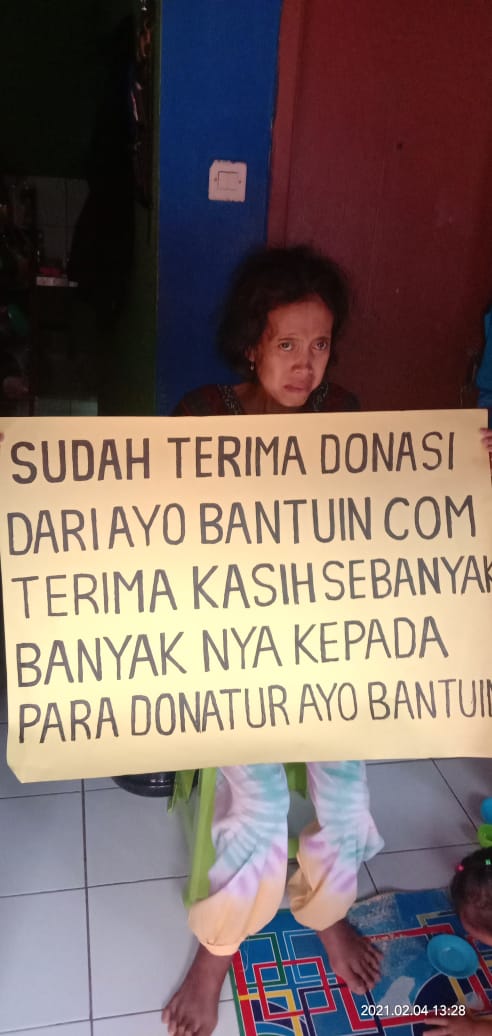 SUDAH TERIMA DONASI
DARI AYO BANTUIN COM
TERIMA KASIH SEBANYAK
BANYAK NYA KEPADA
PARA DONATUR AYO BANTUIN
2021.02.04 13:28